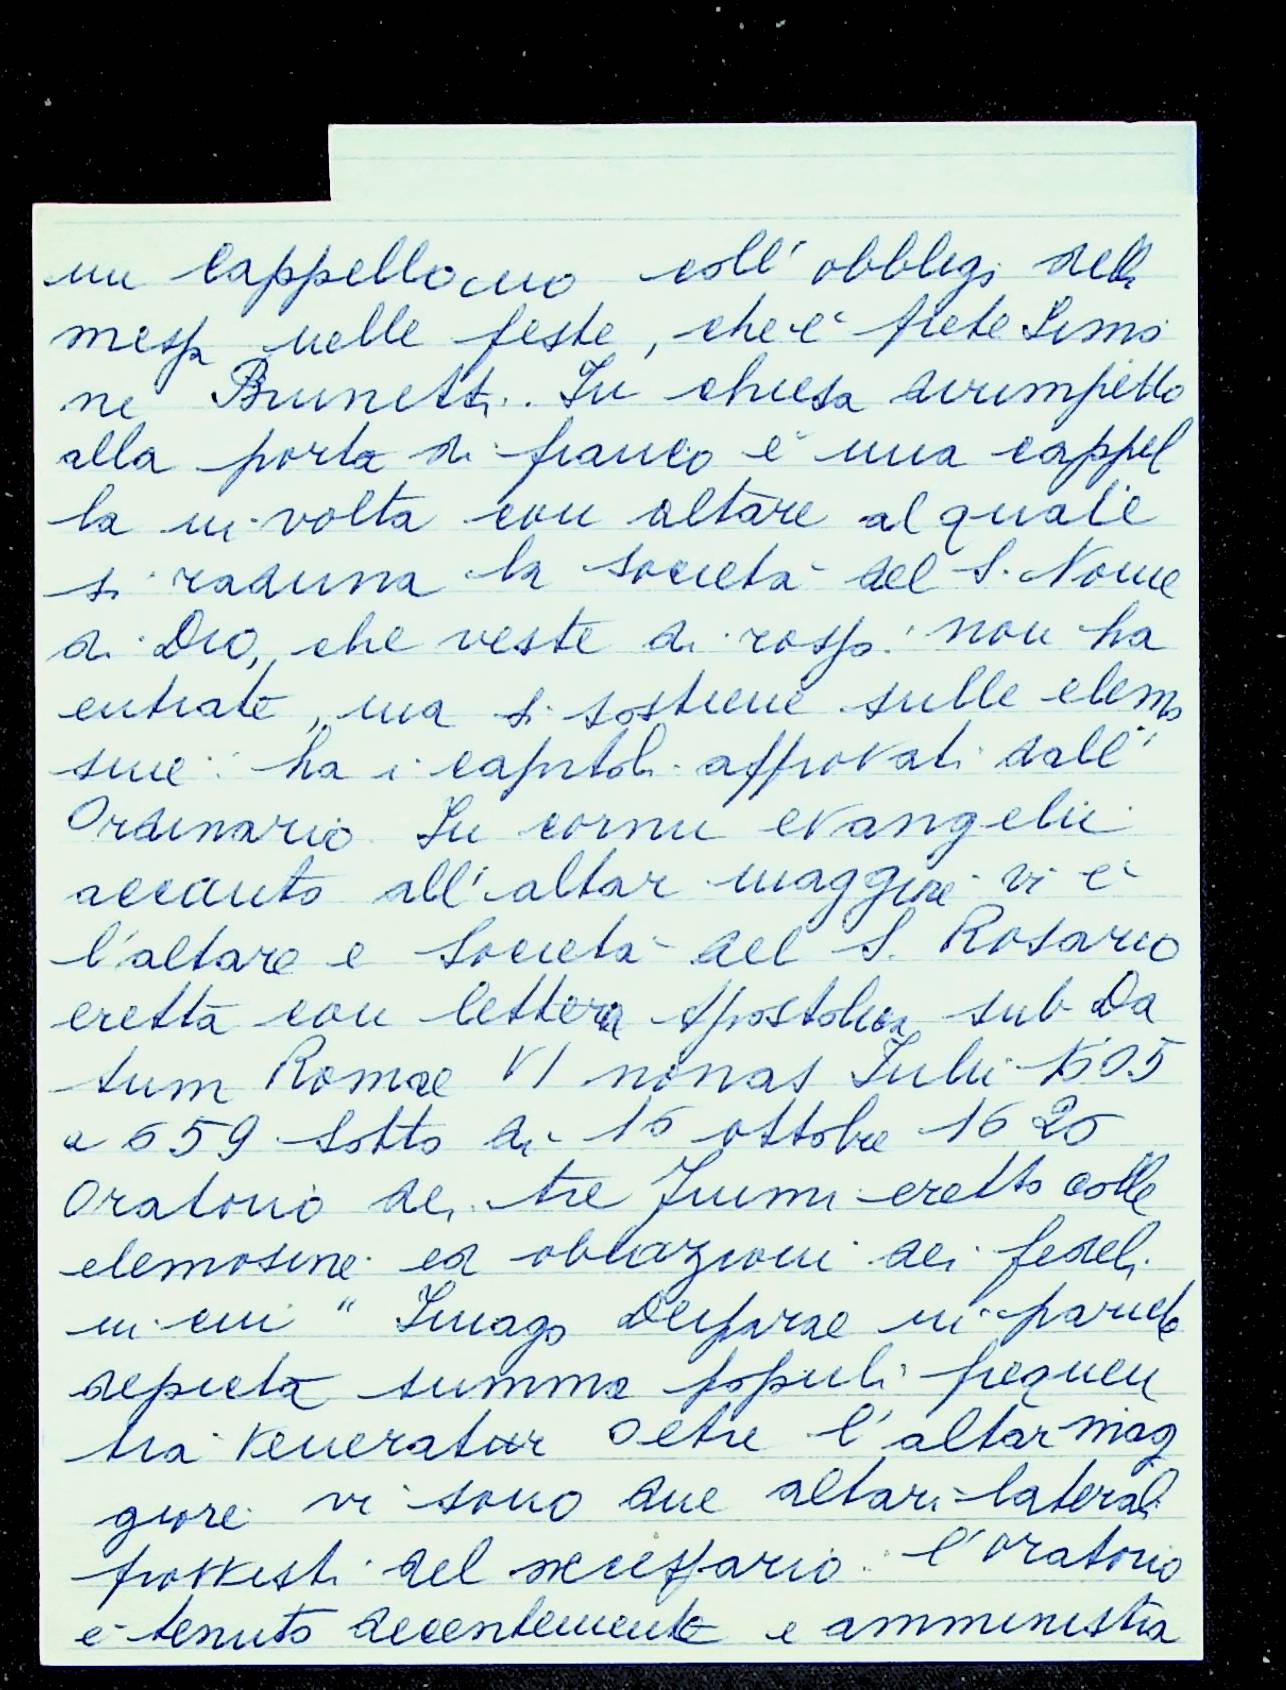 un Cappellano coll' obbligo della
messa nelle feste, che è prete Simo
ne Brunetti. In chiesa dirimpetto
alla porta di fianco è una cappel
la in volta con altare al quale
si raduna la Società del S. Nome
di Dio, che veste di rosso: non ha
entrate, ma si sostiene sulle elemo
sine: ha i capitoli approvati dall'
Ordinario. In cornu evangelii
accanto all'altar maggiore vi è
l'altare e Società del S. Rosario
eretta con lettera Apostolica sub Da
tum Romae VI nonas Iulii
a 659 sotto di 16 ottobre 1620
Oratorio dei tre fiumi eretto colle
elemosine ed oblazioni dei fedeli
in cui " Imago Deiparae in pariete
depicta summa populi frequen
tia veneratur Oltre l'altar mag
giore vi sono due altari laterali
provvisti del necessario: l'oratorio
è tenuto decentemente e amministra